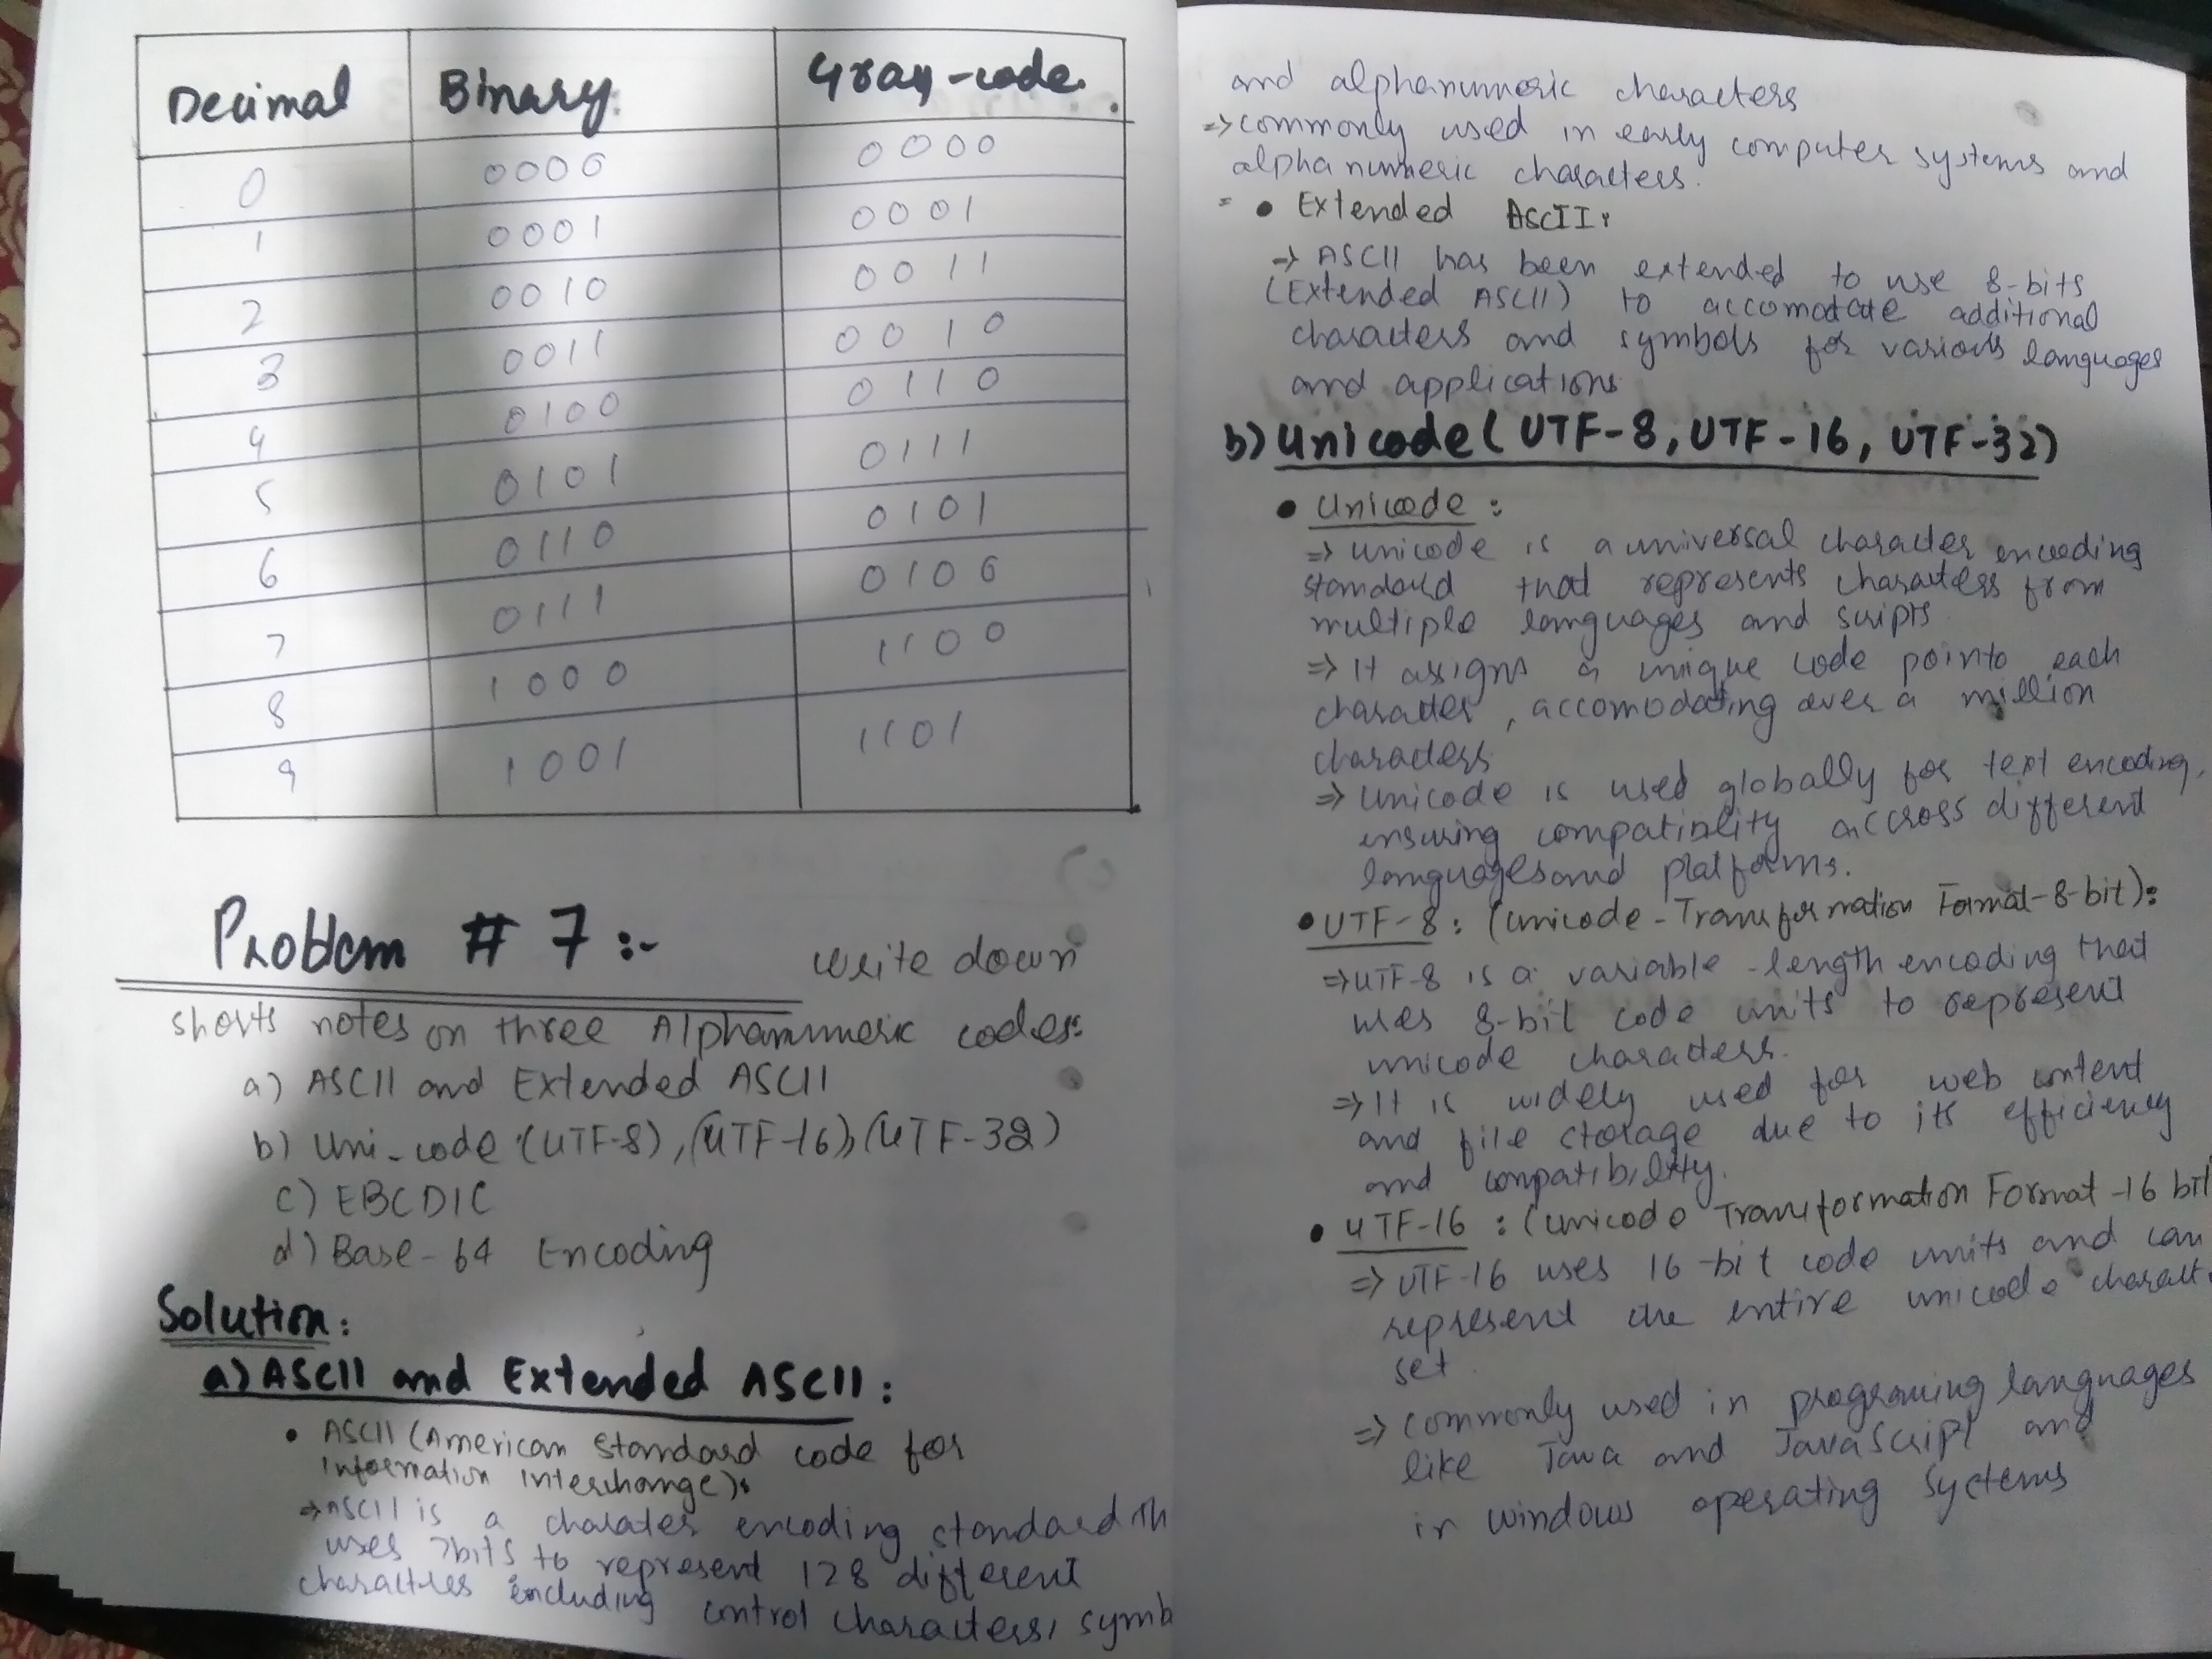 Decimal Binary: Gray-code.
0 0000 0000
1 0001 0001
2 0010 0011
3 0011 0010
4 0100 0110
5 0101 0111
6 0110 0101
7 0111 0100
8 1000 1100
9 1001 1101
Problem # 7 :- write down
shorts notes on three Alphanumeric codes:
a) ASCII and Extended ASCII
b) Uni-code (UTF-8), (UTF-16), (UTF-32)
c) EBCDIC
d) Base-64 Encoding
Solution:
a) ASCII and Extended ASCII:
• ASCII (American Standard code for
Information Interchange):
⇒ ASCII is a charater encoding standard th
uses 7bits to represent 128 different
characters including control characters, symb
and alphanumeric characters
⇒ commonly used in early computer systems and
alphanumeric characters.
• Extended ASCII:
⇒ ASCII has been extended to use 8-bits
(Extended ASCII) to accomodate additional
characters and symbols for various languages
and applications
b) Unicode (UTF-8, UTF-16, UTF-32)
• Unicode:
⇒ unicode is a universal character encoding
standard that represents characters from
multiple languages and scripts
⇒ It assigns a unique code pointo each
character, accomodating over a million
characters
⇒ Unicode is used globally for text encoding,
ensuring compatiblity accross different
languages and platforms.
• UTF-8: (unicode-Transformation Format-8-bit):
⇒ UTF-8 is a variable-length encoding that
uses 8-bit code units to represent
unicode characters.
⇒ It is widely used for web content
and file storage due to its efficiency
and compatibility.
• UTF-16: (unicode Transformation Format-16 bit
⇒ UTF-16 uses 16-bit code units and can
represent the entire unicode charact
set
⇒ commonly used in programing languages
like Java and JavaScript and
in windows operating systems